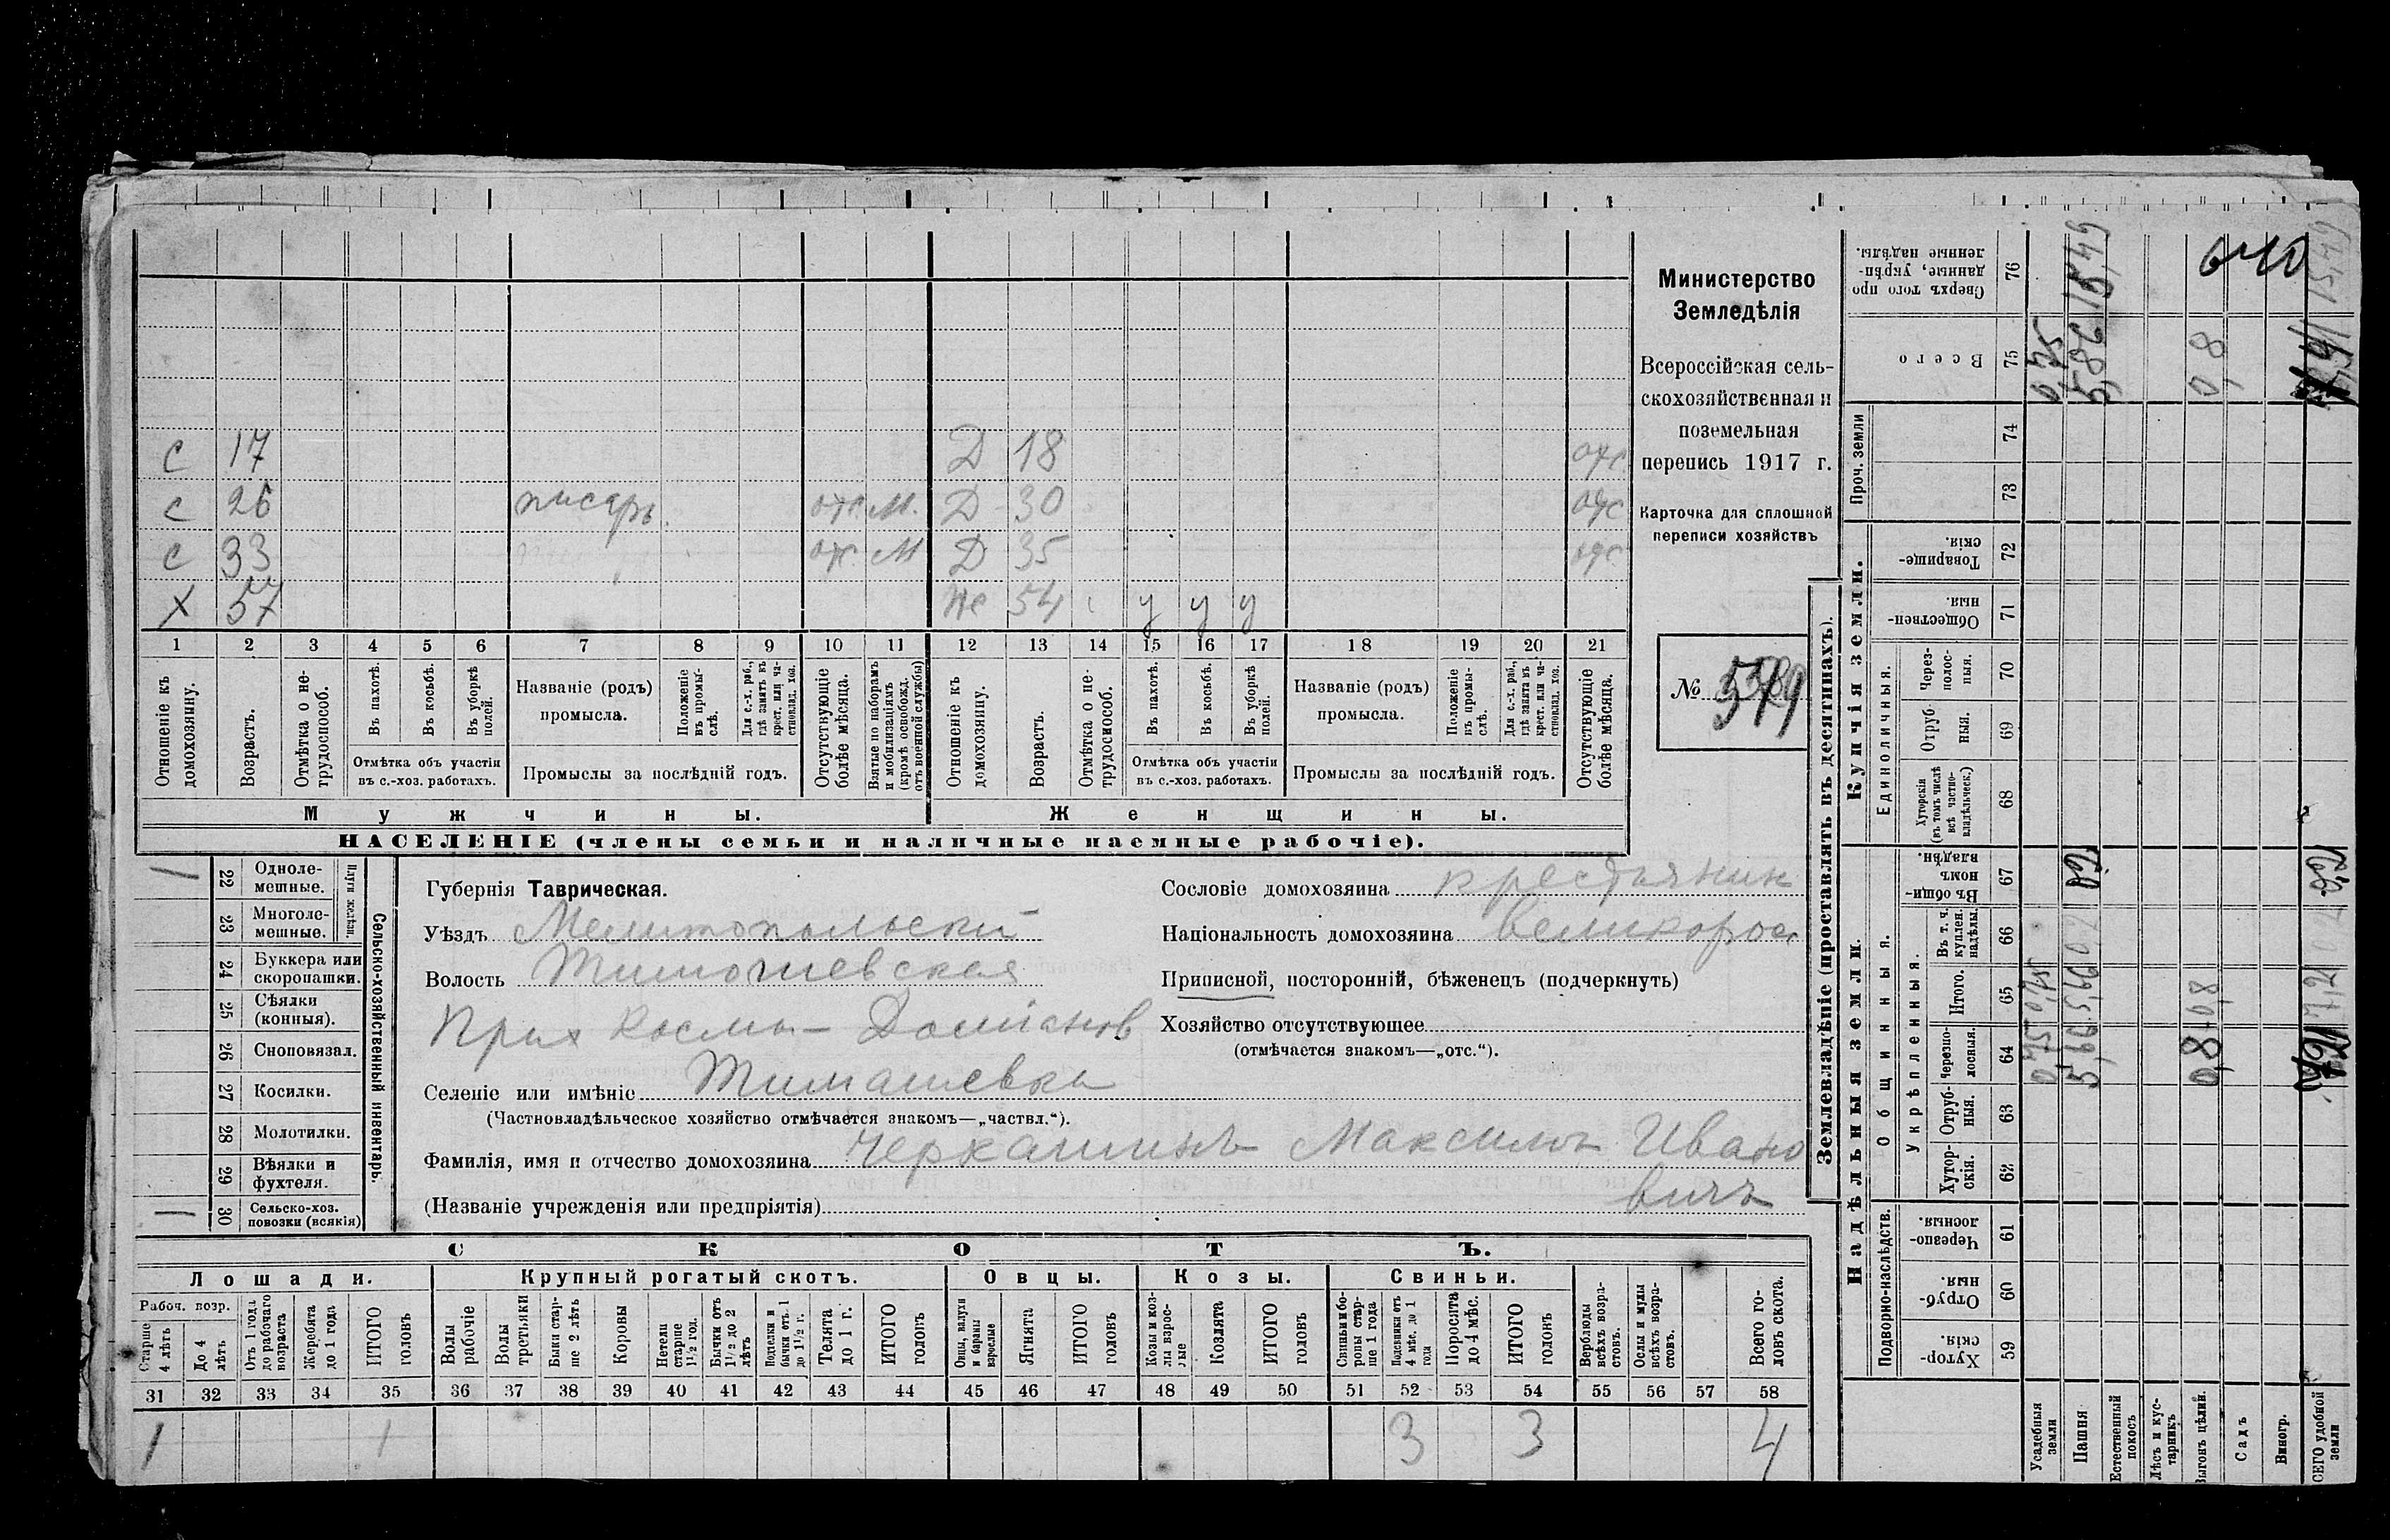 с 17 Д 18 отс
с 26 писарь отс М. Д 30 отс
с 33 " отс М Д 35 отс
х 57 же 54 у у у
1 2 3 4 5 6 7 8 9 10 11 12 13 14 15 16 17 18 19 20 21
Отношеніе къ домохозяину.
Возрастъ.
Отмѣтка о не-
трудоспособ.
Въ пахотѣ.
Въ косьбѣ.
Въ уборкѣ полей.
Отмѣтка объ участіи
въ с.-хоз. работахъ.
Названіе (родъ)
промысла.
Положеніе въ промы-
слѣ.
Для с.-х. раб., гдѣ занятъ въ крест. или ча-
стновлад. хоз.
Промыслы за послѣдній годъ.
Отсутствующіе
болѣе мѣсяца.
Взятые по наборамъ
и мобилизаціямъ
(кромѣ освобожд.
отъ военной службы)
Отношеніе къ
домохозяину.
Возрастъ.
Отмѣтка о не-
трудоспособ.
Въ пахотѣ.
Въ косьбѣ.
Въ уборкѣ полей.
Отмѣтка объ участіи
въ с.-хоз. работахъ.
Названіе (родъ)
промысла.
Положеніе въ промы-
слѣ.
Для с.-х. раб., гдѣ занята въ крест. или ча-
стновлад. хоз.
Промыслы за послѣдній годъ.
Отсутствующіе
болѣе мѣсяца.
Мужчины.
Женщины.
НАСЕЛЕНІЕ (члены семьи и наличные наемные рабочіе).
Министерство
Земледѣлія
Всероссійская сель-
скохозяйственная и
поземельная
перепись 1917 г.
Карточка для сплошной
переписи хозяйствъ
№
Сельско-хозяйственный инвентарь.
Плуги желѣзн.
1 22 Одноле-
мешные.
23 Многоле-
мешные.
24 Буккера или
скоропашки.
25 Сѣялки
(конныя).
26 Сноповязал.
27 Косилки.
28 Молотилки.
29 Вѣялки и
фухтеля.
1 30 Сельско-хоз.
повозки (всякія)
Губернія Таврическая.
Уѣздъ Мелитопольскій
Волость Тимошевская
Прих Косма-Доміанов
Селеніе или имѣніе Тимашевка
(Частновладѣльческое хозяйство отмѣчается знакомъ—„частвл.“).
Фамилія, имя и отчество домохозяина Черкашинъ Максимъ Ивано
вичъ
(Названіе учрежденія или предпріятія)
Сословіе домохозяина крестьянин
Національность домохозяина великорос
Приписной, посторонній, бѣженецъ (подчеркнуть)
Хозяйство отсутствующее
(отмѣчается знакомъ—„отс.“).
СКОТЪ.
Лошади.
Крупный рогатый скотъ.
Овцы.
Козы.
Свиньи.
Рабоч. возр.
Старше 4 лѣтъ
До 4 лѣтъ
Отъ 1 года до рабочаго возраста
Жеребята до 1 года
ИТОГО головъ
Волы рабочіе
Волы третьяки
Быки стар-
ше 2 лѣтъ
Коровы
Нетели старше 1½ год.
Бычки отъ 1½ до 2 лѣтъ
Подтелки и бычки отъ 1 до 1½ г.
Телята до 1 г.
ИТОГО головъ
Овцы, валухи и бараны взрослые
Ягнята
ИТОГО головъ
Козы и коз-
лы взрос-
лые
Козлята
ИТОГО головъ
Свиньи и бо-
ровы стар-
ше 1 года
Подсвинки отъ 4 мѣс. до 1 года
Поросята до 4 мѣс.
ИТОГО головъ
Верблюды всѣхъ возра-
стовъ.
Ослы и мулы всѣхъ возра-
стовъ.
Всего го-
ловъ скота.
31 32 33 34 35 36 37 38 39 40 41 42 43 44 45 46 47 48 49 50 51 52 53 54 55 56 57 58
1 1 3 3 4
Землевладѣніе (проставлять въ десятинахъ).
Надѣльныя земли.
Купчія земли.
Проч. земли
Подворно-наслѣдств.
Общинныя.
Укрѣпленныя.
Единоличныя.
Сверхъ того про-
данные, укрѣп-
ленные надѣлы. 76
Всего 75
74
73
Товарище-
скія. 72
Обществен-
ныя. 71
Через-
полос-
ныя. 70
Отруб-
ныя. 69
Хуторскія
(въ томъ числѣ
всѣ частно-
владѣльческ.) 68
Въ общин-
номъ
владѣн. 67
Въ т. ч.
куплен.
надѣлы. 66
Итого. 65
Черезпо-
лосныя. 64
Отруб-
ныя. 63
Хутор-
скія. 62
Черезпо-
лосныя. 61
Отруб-
ныя. 60
Хутор-
скія. 59
Усадебныя земли 0,75 0,75 0,75
Пашня 5,66 5,66 0,2 5,86 15,49
Естественный покосъ
Лѣсъ и кус-
тарникъ
Выгонъ цѣлин. 0,8 0,8 0,8
Садъ
Виногр.
ВСЕГО удобной земли 7,21 0,2 15,49